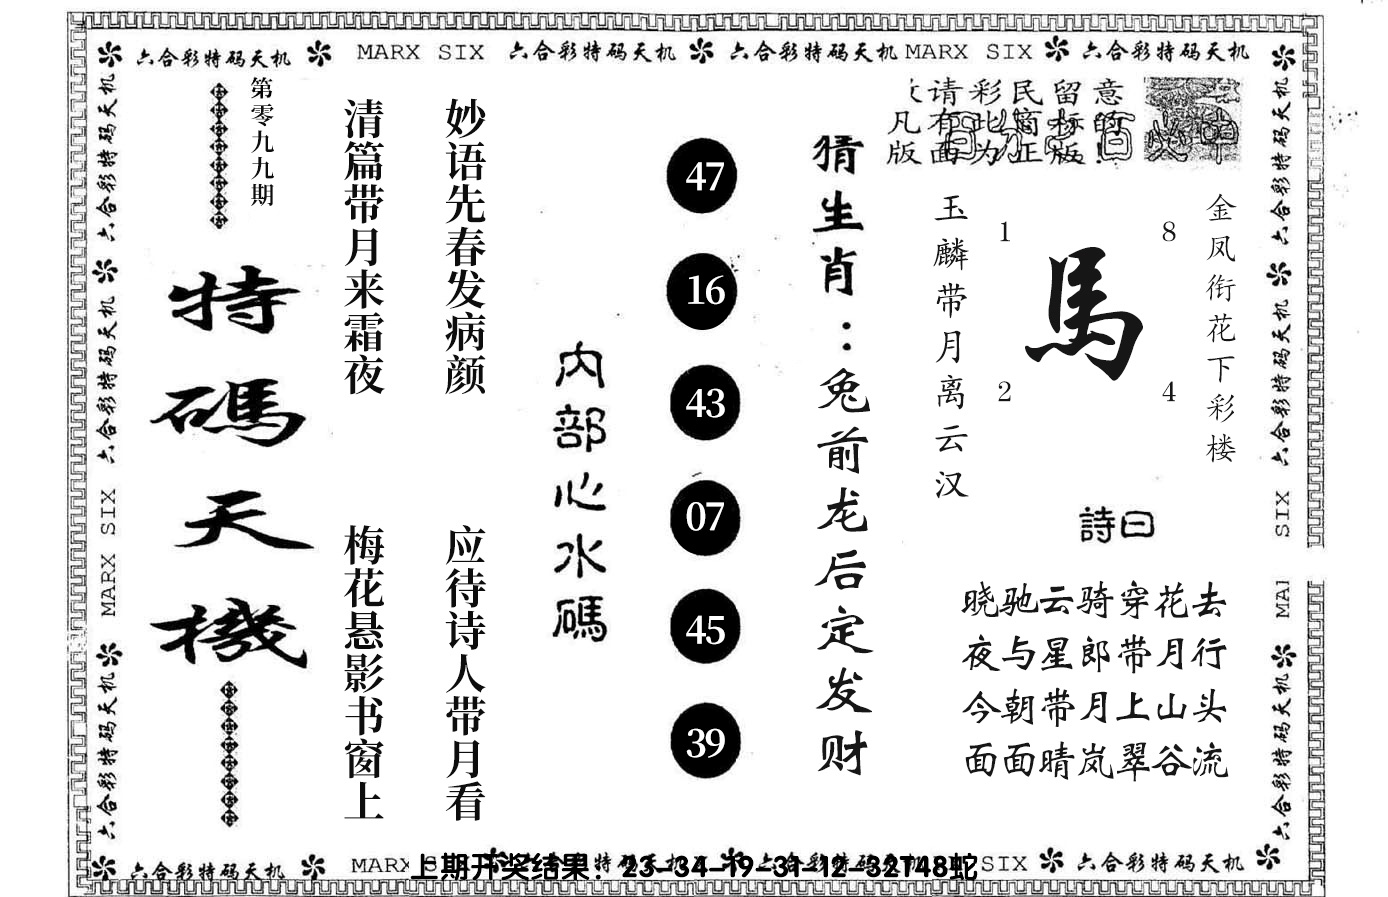 六合彩特码天机 MARX SIX 六合彩特码天机 六合彩特码天机 MARX SIX 六合彩特码天机
六合彩特码天机 六合彩特码天机 MARX SIX 六合彩特码天机
第零九九期
特碼天機
清篇带月来霜夜
梅花悬影书窗上
妙语先春发病颜
应待诗人带月看
内部心水碼
47
16
43
07
45
39
猜生肖：兔前龙后定发财
请彩民留意
凡有此商标的
版面为正版！
玉麟带月离云汉
1
8
馬
2
4
金凤衔花下彩楼
詩曰
晓驰云骑穿花去
夜与星郎带月行
今朝带月上山头
面面晴岚翠谷流
六合彩特码天机 六合彩特码天机 SIX 六合彩特码天机
六合彩特码天机 MARX SIX 六合彩特码天机
上期开奖结果：23-34-19-31-12-32T48蛇